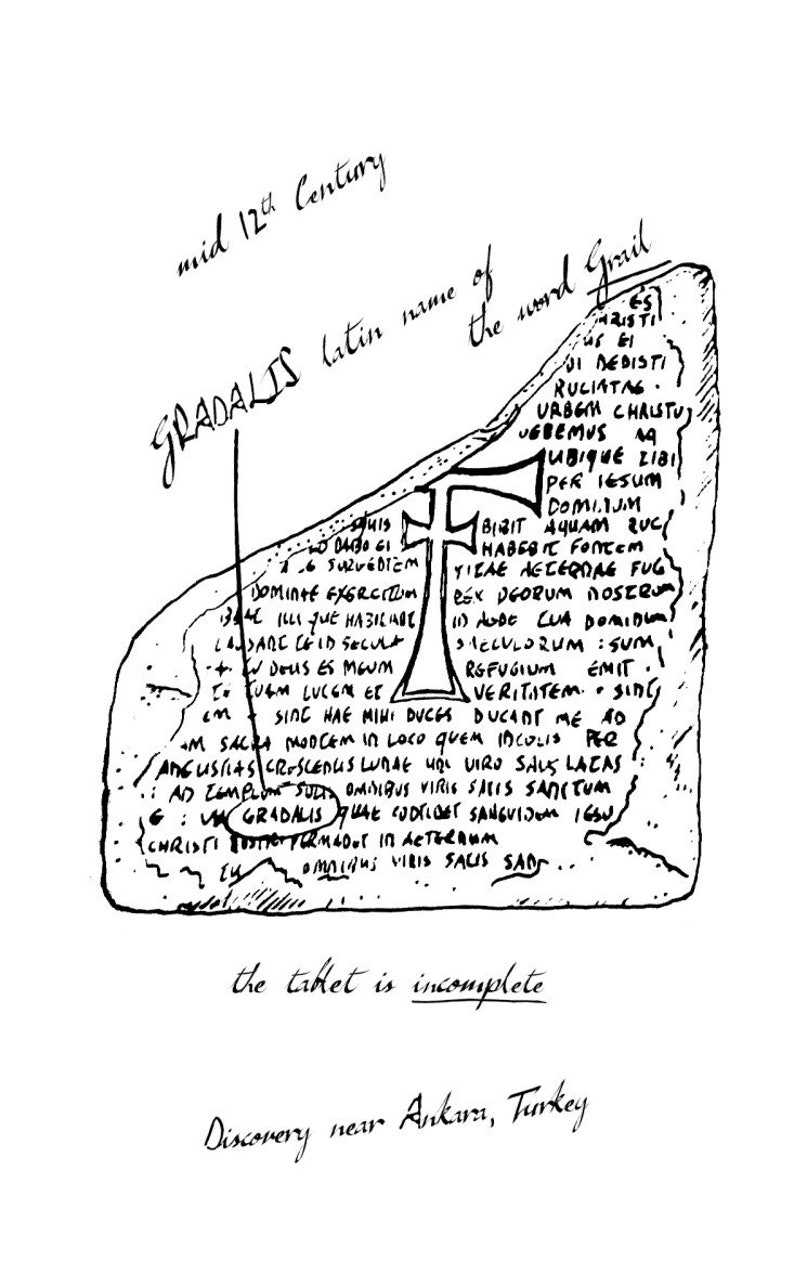 mid 12th Century
GRADALIS latin name of
the word Grail
ES
HRISTI
US EI
UI DEDISTI
RUCIATAE ·
URBEM CHRISTU
UEBEMUS AQ
UBIQUE TIBI
PER IESUM
DOMINUM
QUIS BIBIT AQUAM
DABO EI HABEBIT FONTEM
VITAE AETERNAE FUG
DOMINAE EXERCITUM REX DEORUM NOSTRUM
ILLI QUE HABITANT IN AUDE TUA DOMINUM
LAUDANT TE IN SECULA SAECULORUM : SUM
TU DEUS ES MEUM REFUGIUM EMIT
TUAM LUCEM ET VERITATEM · SINT
SINT HAE MIHI DUCES DUCANT ME AD
AM SACRA MONTEM IN LOCO QUEM INCOLIS PER
ANGUSTIAS CRESCENTIS LUNAE VIRO SALIS LATAS
: AD TEMPLUM SOLIS OMNIBUS VIRIS SATIS SANCTUM
E : GRADALIS QUAE CONTINET SANGUINEM IESU
CHRISTI NOSTRI PERMANOT IN AETERNUM
EU OMNIBUS VIRIS SALIS SAN
the tablet is incomplete
Discovery near Ankara, Turkey